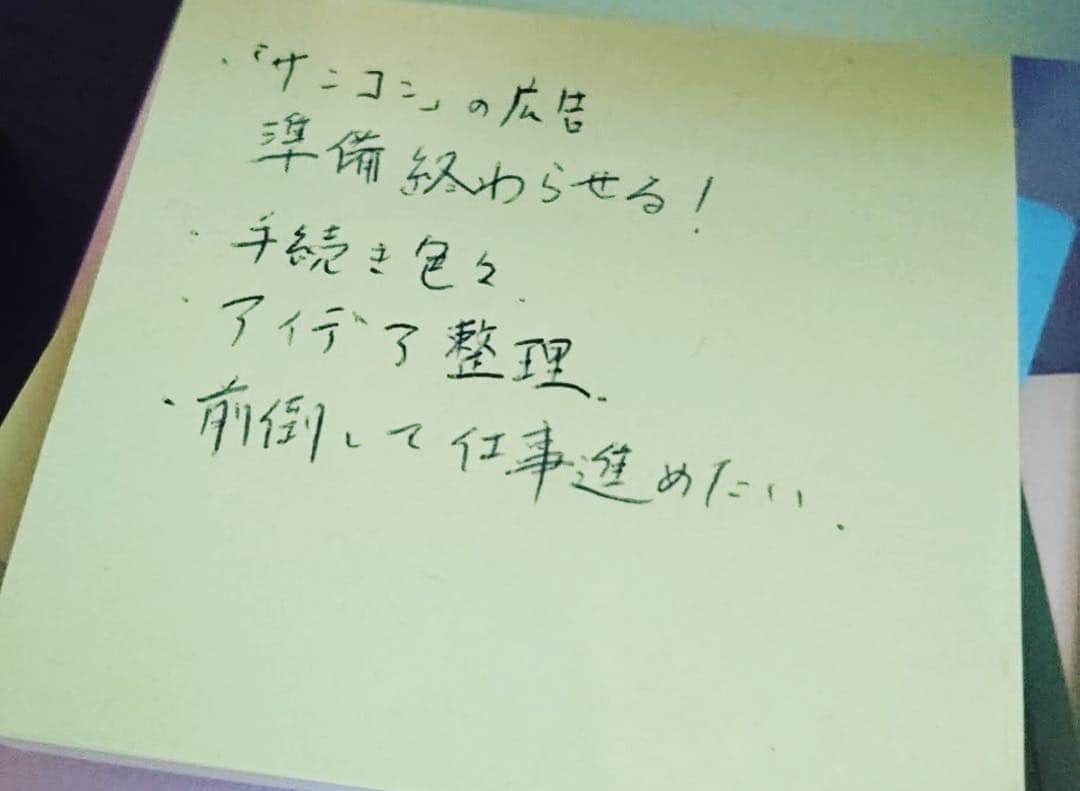 ・「サンコン」の広告
準備終わらせる！
・手続き色々.
・アイデア整理.
・前倒して仕事進めたい.